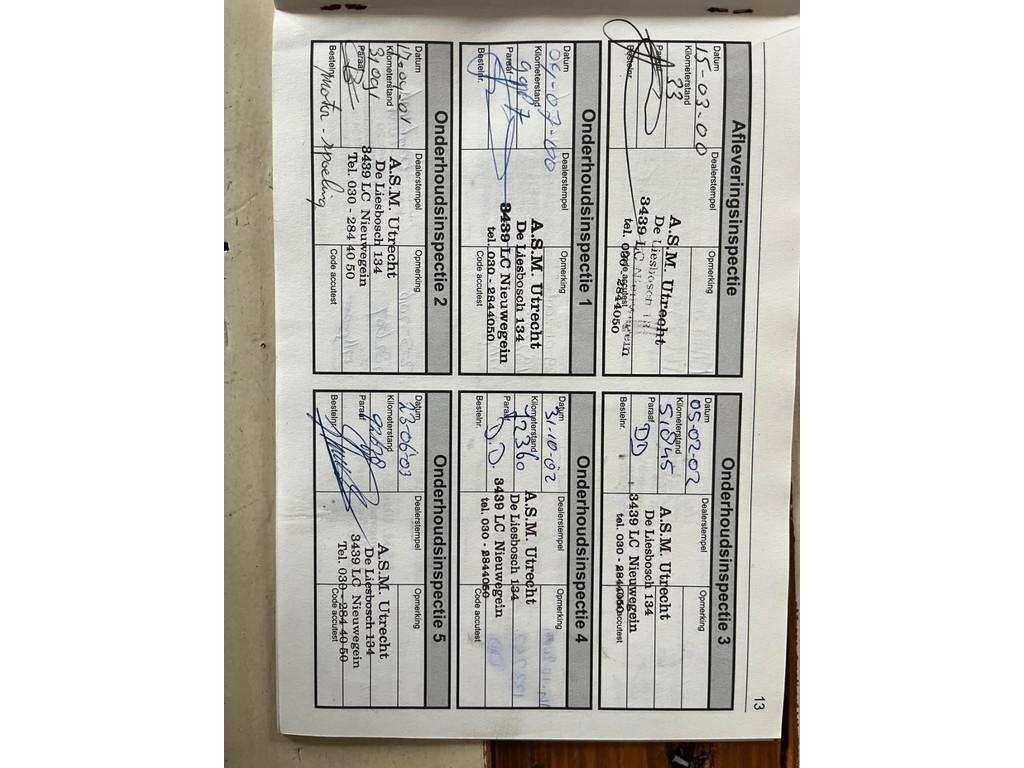 13
Afleveringsinspectie
Datum
Dealerstempel
Opmerking
15-03-00
Kilometerstand
33
A.S.M. Utrecht
Paraaf
De Liesbosch 134
3439 LC Nieuwegein
Bestelnr.
Code accutest
tel. 030 - 2844050
Onderhoudsinspectie 1
Datum
Dealerstempel
Opmerking
04-07-00
Kilometerstand
A.S.M. Utrecht
Paraaf
De Liesbosch 134
3439 LC Nieuwegein
Bestelnr.
Code accutest
tel. 030 - 2844050
Onderhoudsinspectie 2
Datum
Dealerstempel
Opmerking
Kilometerstand
A.S.M. Utrecht
Paraaf
De Liesbosch 134
3439 LC Nieuwegein
Bestelnr.
Code accutest
Tel. 030 - 284 40 50
motor - spoeling
Onderhoudsinspectie 3
Datum
Dealerstempel
Opmerking
05-02-02
Kilometerstand
51845
A.S.M. Utrecht
Paraaf
DD
De Liesbosch 134
3439 LC Nieuwegein
Bestelnr.
Code accutest
tel. 030 - 2844050
Onderhoudsinspectie 4
Datum
Dealerstempel
Opmerking
31-10-02
Kilometerstand
72360
A.S.M. Utrecht
Paraaf
D.D.
De Liesbosch 134
3439 LC Nieuwegein
Bestelnr.
Code accutest
tel. 030 - 2844050
Onderhoudsinspectie 5
Datum
Dealerstempel
Opmerking
23-06-03
Kilometerstand
A.S.M. Utrecht
Paraaf
De Liesbosch 134
3439 LC Nieuwegein
Bestelnr.
Code accutest
Tel. 030 - 284 40 50